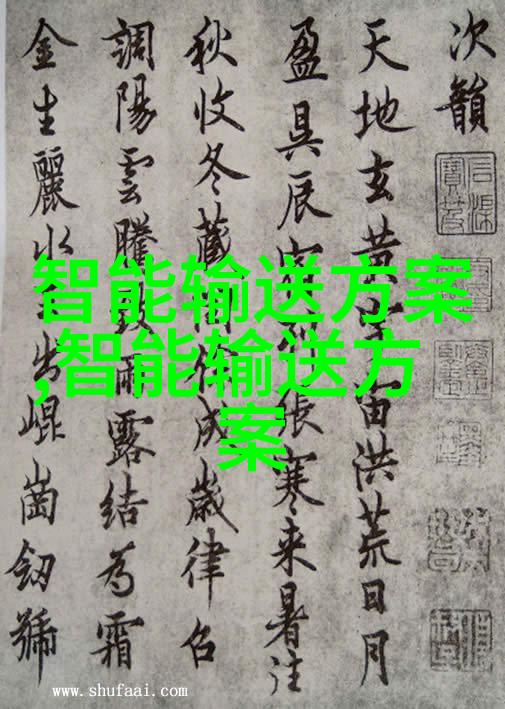 次韻
天地玄黄宇宙洪荒日月
盈昃辰宿列張寒来暑往
秋收冬藏閏餘成歲律召
調陽雲騰致雨露結為霜
金生麗水玉出崐崗劒號
智能输送方案
,智能输送方
案
www.shufaai.com